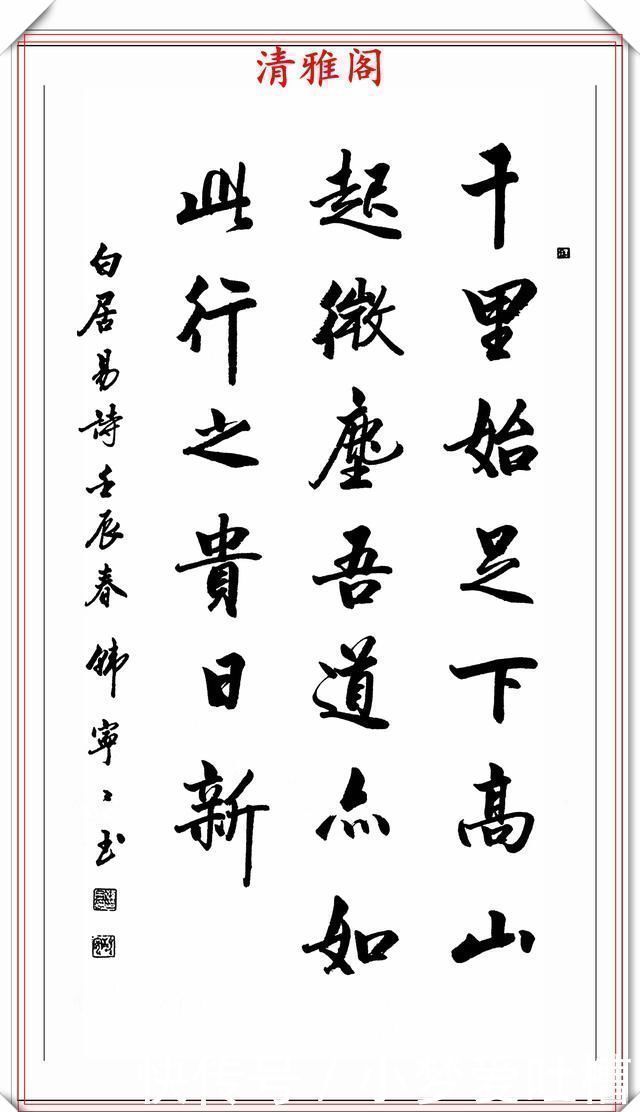 清雅阁
千里始足下高山
起微塵吾道亦如
此行之貴日新
白居易詩壬辰春韩寧〻书
快传号